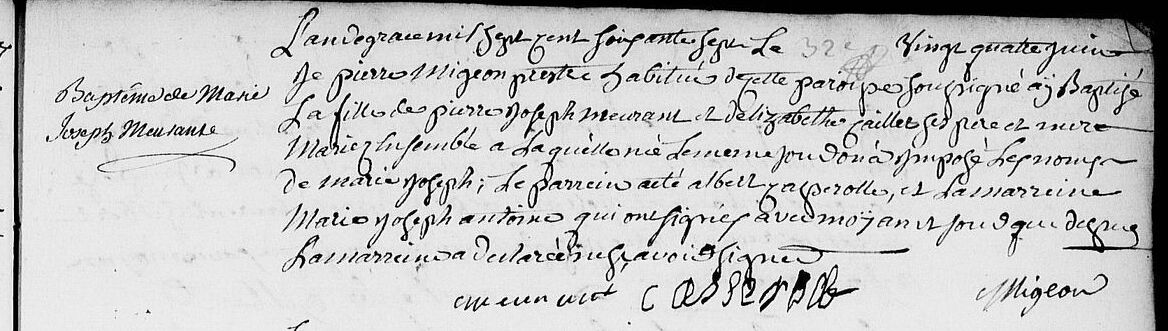 L'an de grace mil sept cent soixante sept Le vingt quatre juin
Je pierre Migeon prestre habitué de cette paroisse soussigné aÿ Baptisé
Baptême de Marie
La fille de pierre joseph meurant et d'elizabethe caillet ses pere et mere
Joseph Meurante
Mariez Ensemble a Laquelle née Le meme jour on a Imposé Les noms
de marie joseph; Le parrein a été albert casperolle, et La marreine
Marie joseph antoine qui ont signés avec moy an et jour que dessus
La marreine a declarée ne sçavoir signer
meurant casperolle Migeon